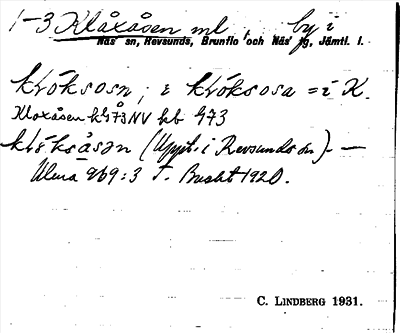 1-3 Klåxåsen ml, by i
Näs' sn, Revsunds, Brunflo och Näs' tg, Jämtl. l.
klöksosn, i klöksosa = i K.
Kloxåsen hG73NV hb G73
klöksåsən (Uppt. i Revsunds sn). —
Ulma 969:3 T. Bucht 1920.
C. LINDBERG 1931.